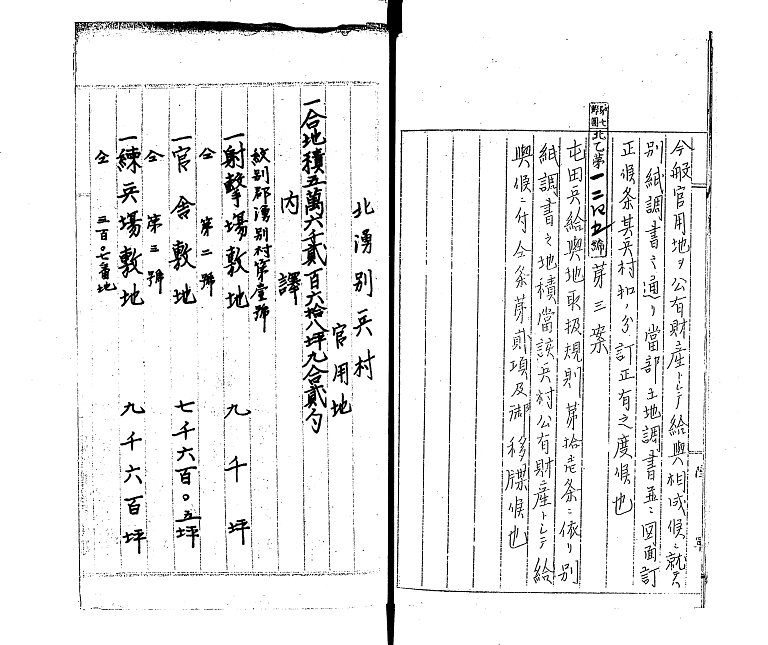 今般官用地ヲ公有財産トシテ給與相成候ニ就テハ
別紙調書之通リ當部土地調書並ニ図面訂
正候条其兵村扣ノ分訂正有之度候也
北乙第一二〇五號 第三案
屯田兵給與地取扱規則第拾壱条ニ依リ別
紙調書之地積當該兵村公有財産トシテ給
與候ニ付仝条第貳項及御移牒候也
北湧別兵村
官用地
一合地積五萬六千貳百六拾八坪九合貳勺
内譯
紋別郡湧別村第壹號
一射撃場敷地 九千坪
仝 第二號
一官舎敷地 七千六百〇五坪
仝 第三號
一練兵場敷地 九千六百坪
仝 三百〇七番地